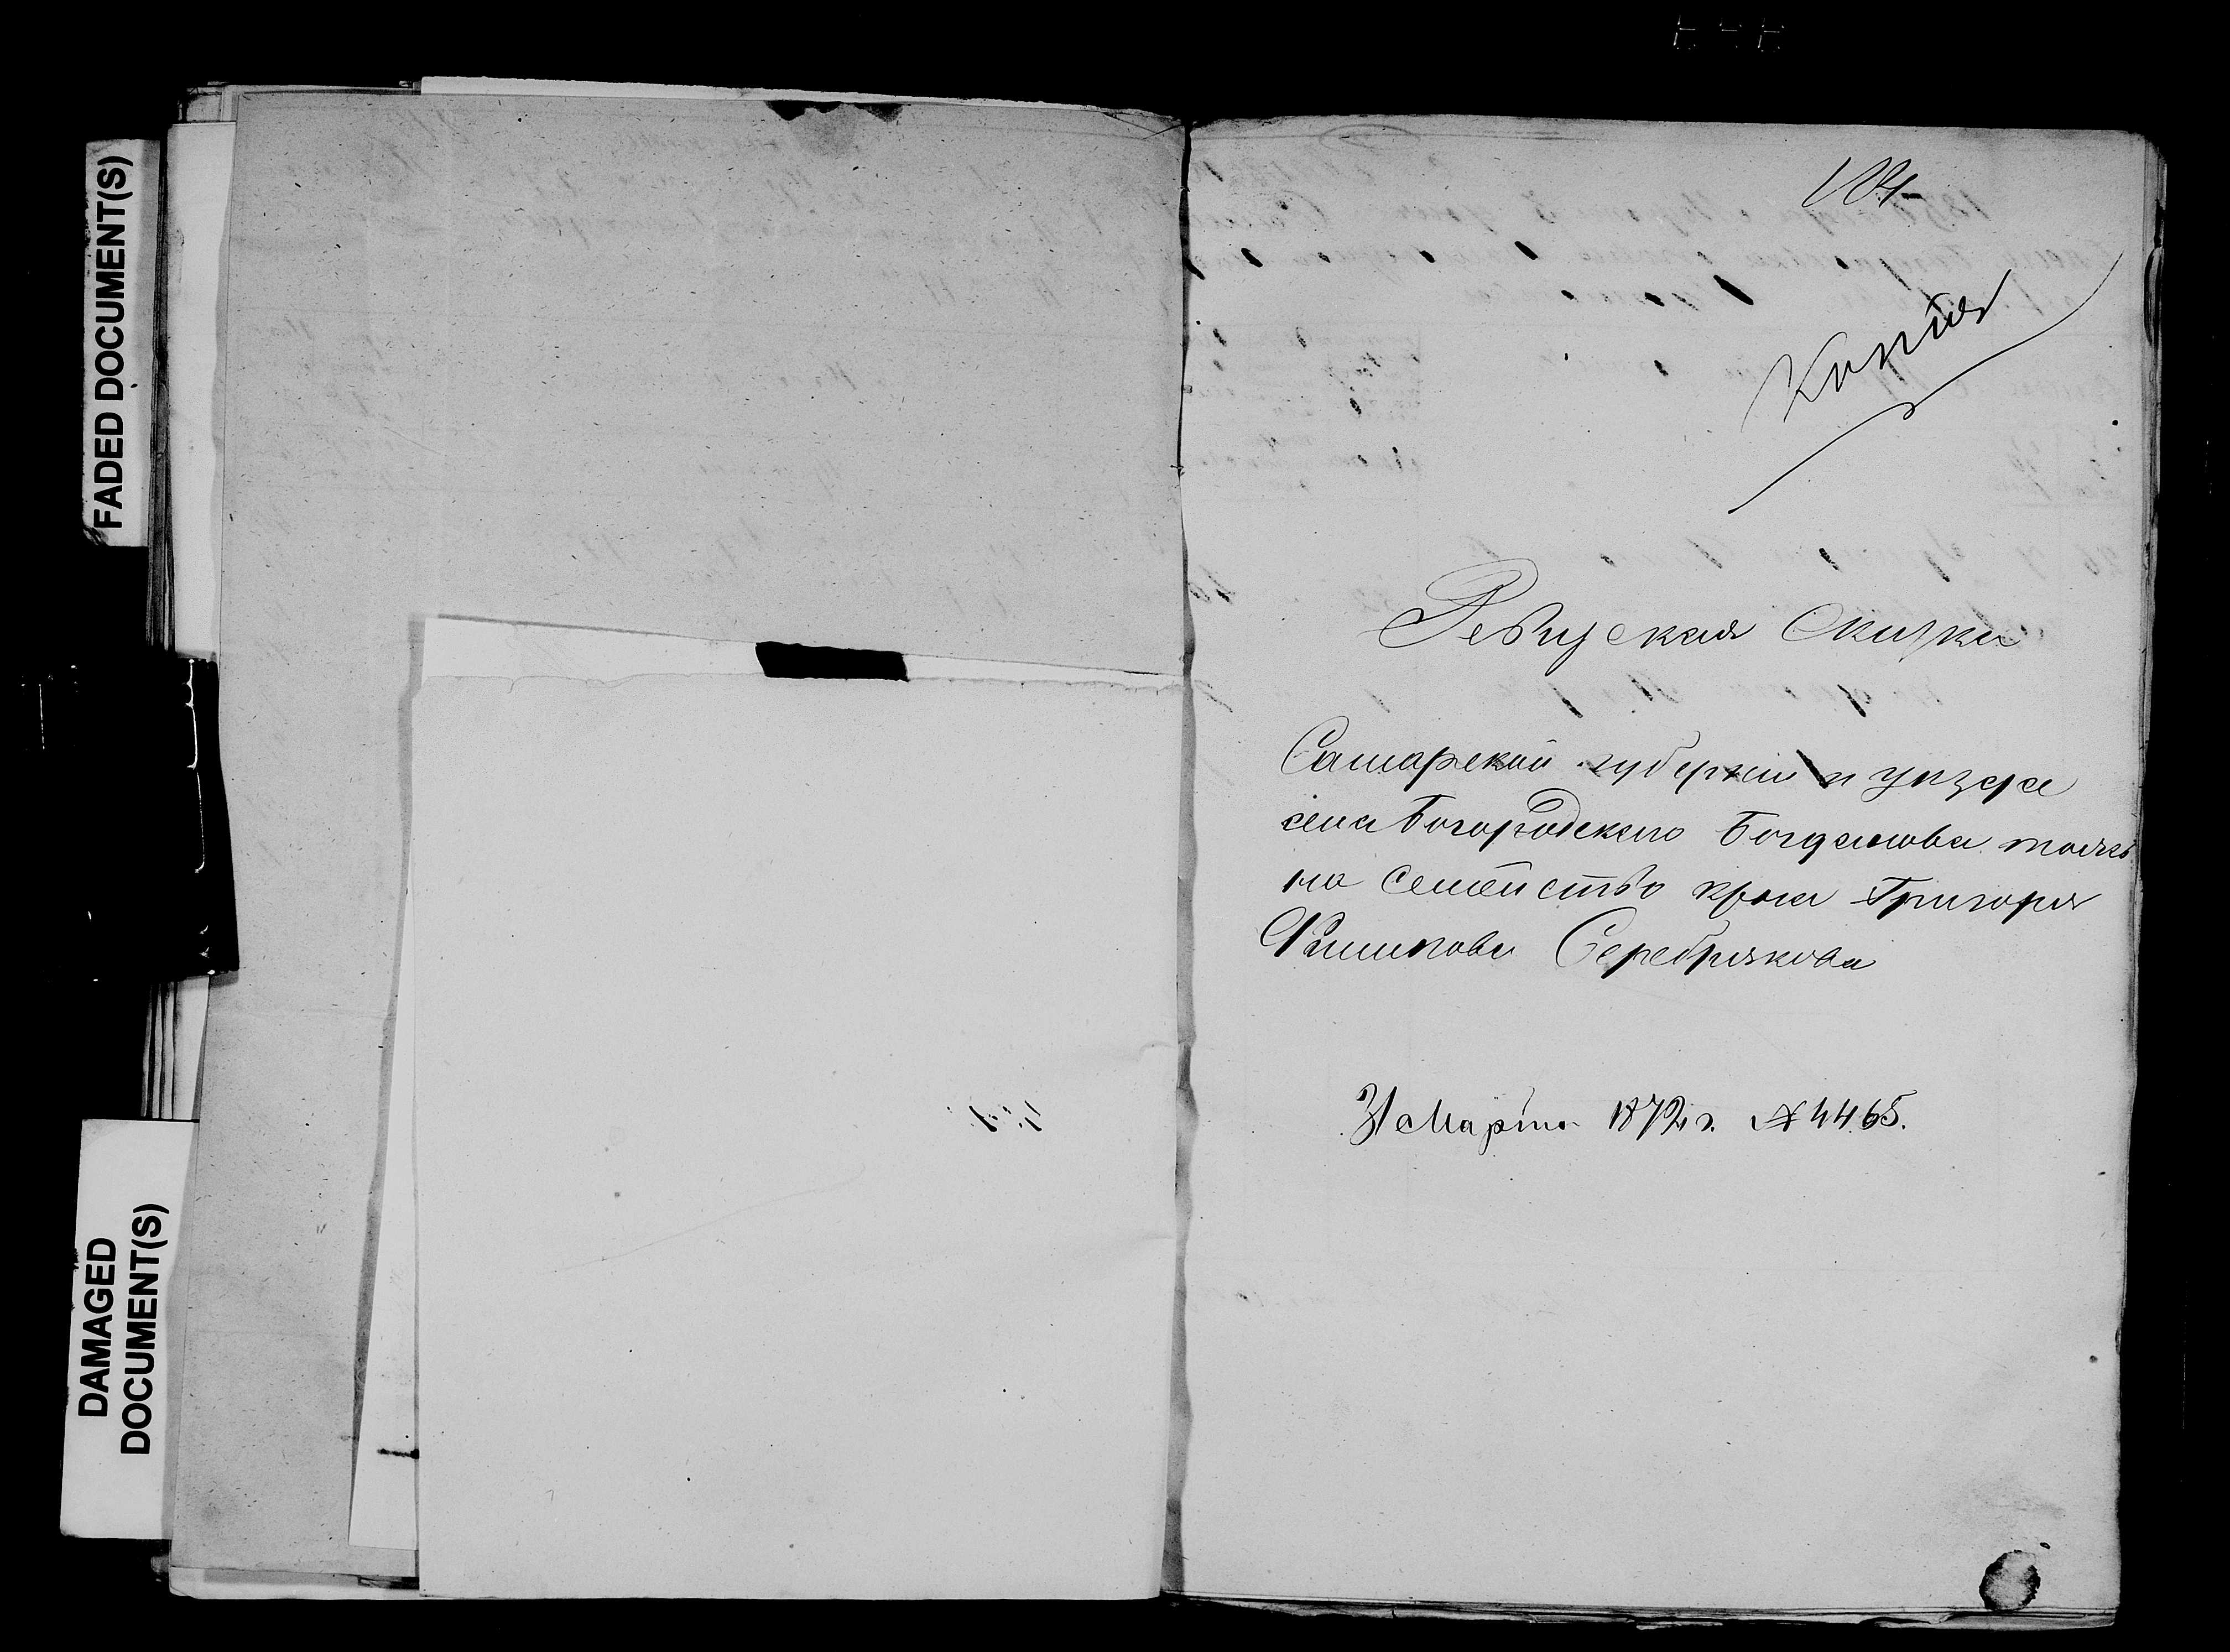 FADED DOCUMENT(S)
DAMAGED
DOCUMENT(S)
184
Копія
Ревизская Сказка
Самарской губерніи и уѣзда
села Богородскаго Богданова тожъ
на Семейство кр-на Григорія
Филипова Серебрякова
31 Марта 1872 г. № 4465.